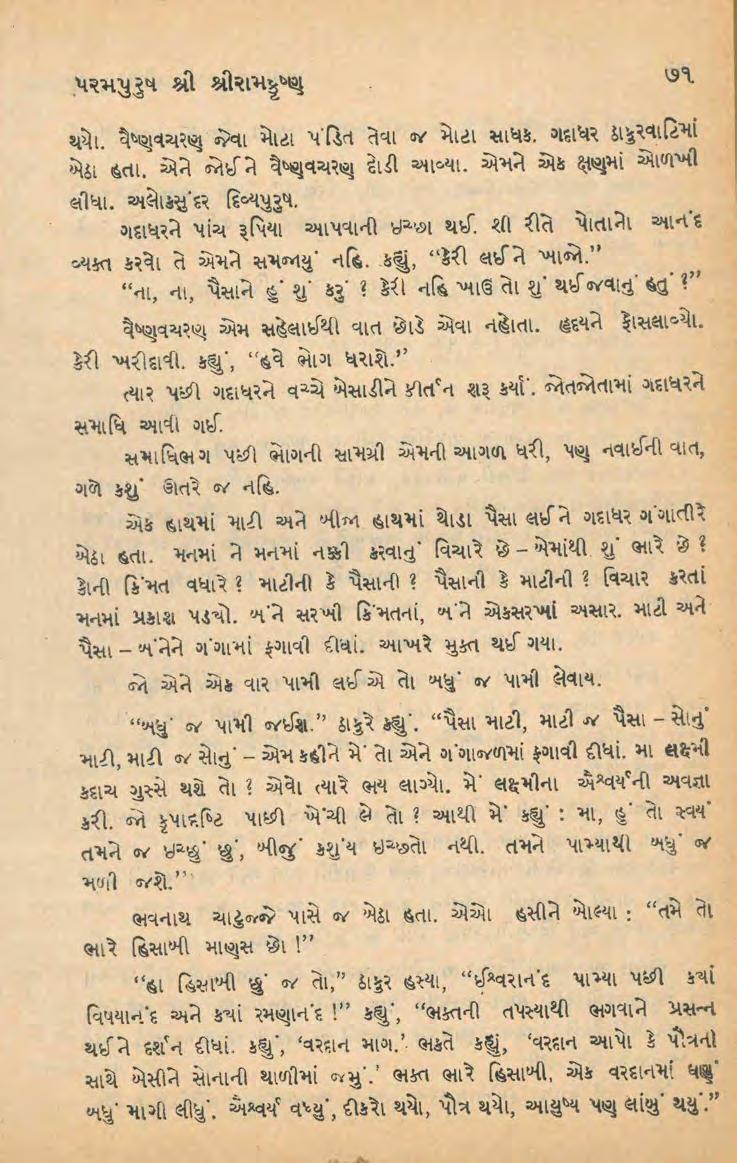 પરમપુરુષ શ્રી શ્રીરામકૃષ્ણ ૭૧
થયો. વૈષ્ણવચરણ જેવા મોટા પંડિત તેવા જ મોટા સાધક. ગદાધર ઠાકુરવાટિમાં
બેઠા હતા. એને જોઈને વૈષ્ણવચરણ દોડી આવ્યા. એમને એક ક્ષણમાં ઓળખી
લીધા. અલોકસુંદર દિવ્યપુરુષ.
ગદાધરને પાંચ રૂપિયા આપવાની ઇચ્છા થઈ. શી રીતે પોતાનો આનંદ
વ્યક્ત કરવો તે એમને સમજાયું નહિ. કહ્યું, “કેરી લઈને ખાજો.”
“ના, ના, પૈસાને હું શું કરું ? કેરી નહિ ખાઉં તો શું થઈ જવાનું હતું ?”
વૈષ્ણવચરણ એમ સહેલાઈથી વાત છોડે એવા નહોતા. હૃદયને ફોસલાવ્યો.
કેરી ખરીદાવી. કહ્યું, “હવે ભોગ ધરાશે.”
ત્યાર પછી ગદાધરને વચ્ચે બેસાડીને કીર્તન શરૂ કર્યાં. જોતજોતામાં ગદાધરને
સમાધિ આવી ગઈ.
સમાધિભંગ પછી ભોગની સામગ્રી એમની આગળ ધરી, પણ નવાઈની વાત,
ગળે કશું ઊતરે જ નહિ.
એક હાથમાં માટી અને બીજા હાથમાં થોડા પૈસા લઈને ગદાધર ગંગાતીરે
બેઠા હતા. મનમાં ને મનમાં નક્કી કરવાનું વિચારે છે – એમાંથી શું ભારે છે ?
કોની કિંમત વધારે ? માટીની કે પૈસાની ? પૈસાની કે માટીની ? વિચાર કરતાં
મનમાં પ્રકાશ પડ્યો. બંને સરખી કિંમતનાં, બંને એકસરખાં અસાર. માટી અને
પૈસા – બંનેને ગંગામાં ફગાવી દીધાં. આખરે મુક્ત થઈ ગયા.
જો એને એક વાર પામી લઈએ તો બધું જ પામી લેવાય.
“બધું જ પામી જઈશ.” ઠાકુરે કહ્યું. “પૈસા માટી, માટી જ પૈસા – સોનું
માટી, માટી જ સોનું – એમ કહીને મેં તો એને ગંગાજળમાં ફગાવી દીધાં. મા લક્ષ્મી
કદાચ ગુસ્સે થશે તો ? એવો ત્યારે ભય લાગ્યો. મેં લક્ષ્મીના ઐશ્વર્યની અવજ્ઞા
કરી. જો કૃપાદૃષ્ટિ પાછી ખેંચી લે તો ? આથી મેં કહ્યું : મા, હું તો સ્વયં
તમને જ ઇચ્છું છું, બીજું કશુંય ઇચ્છતો નથી. તમને પામ્યાથી બધું જ
મળી જશે.”
ભવનાથ ચાટુજ્જે પાસે જ બેઠા હતા. એઓ હસીને બોલ્યા : “તમે તો
ભારે હિસાબી માણસ છો !”
“હા હિસાબી છું જ તો,” ઠાકુર હસ્યા, “ઈશ્વરાનંદ પામ્યા પછી કયાં
વિષયાનંદ અને કયાં રમણાનંદ !” કહ્યું, “ભક્તની તપસ્યાથી ભગવાને પ્રસન્ન
થઈને દર્શન દીધાં. કહ્યું, ‘વરદાન માગ.’ ભકતે કહ્યું, ‘વરદાન આપો કે પૌત્રની
સાથે બેસીને સોનાની થાળીમાં જમું.’ ભક્ત ભારે હિસાબી, એક વરદાનમાં ઘણું
બધું માગી લીધું. ઐશ્વર્ય વધ્યું, દીકરો થયો, પૌત્ર થયો, આયુષ્ય પણ લાંબું થયું.”